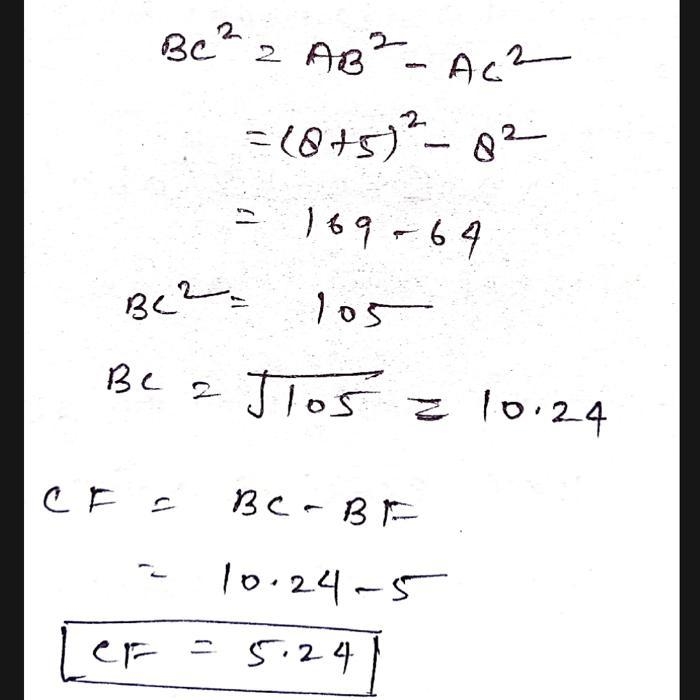 BC² = AB² - AC²
= (8+5)² - 8²
= 169 - 64
BC² = 105
BC = √105 = 10.24
CF = BC - BF
= 10.24 - 5
CF = 5.24